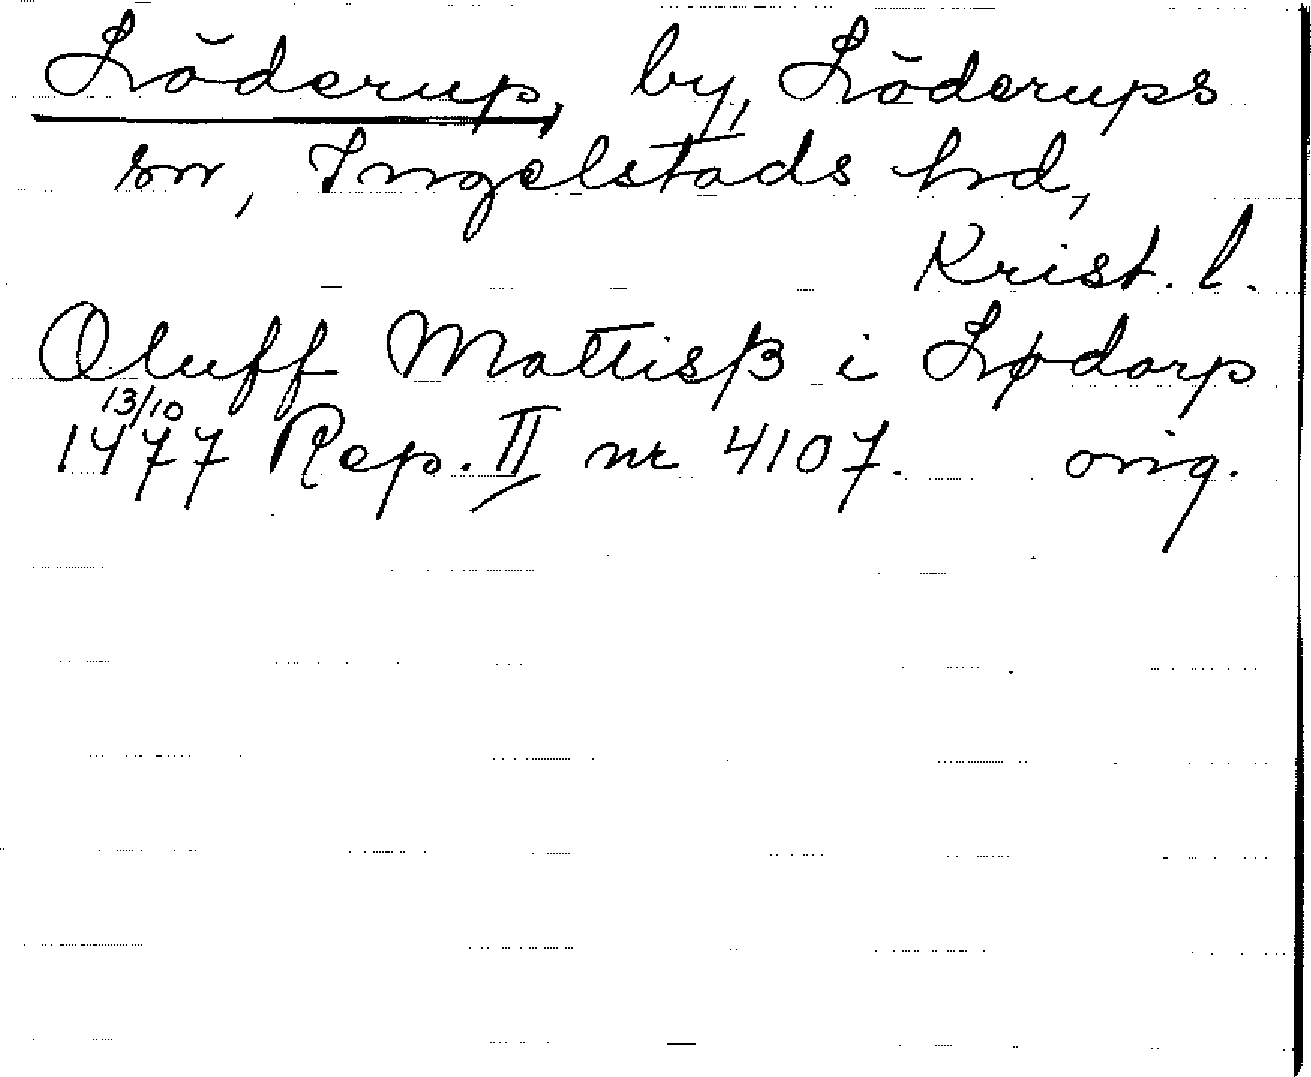 Löderup, by, Löderups
sn, Ingelstads hrd,
Krist. l.
Oluff Mattisß i Lødorp
13/10
1477 Rep. II nr 4107. orig.